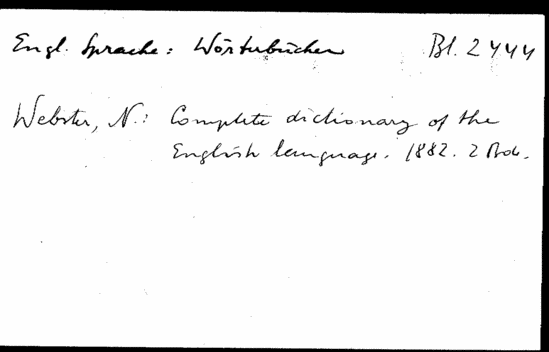 Engl. Sprache: Wörterbücher Bl. 2444
Webster, N.: Complete dictionary of the
English language. 1882. 2 Bde.